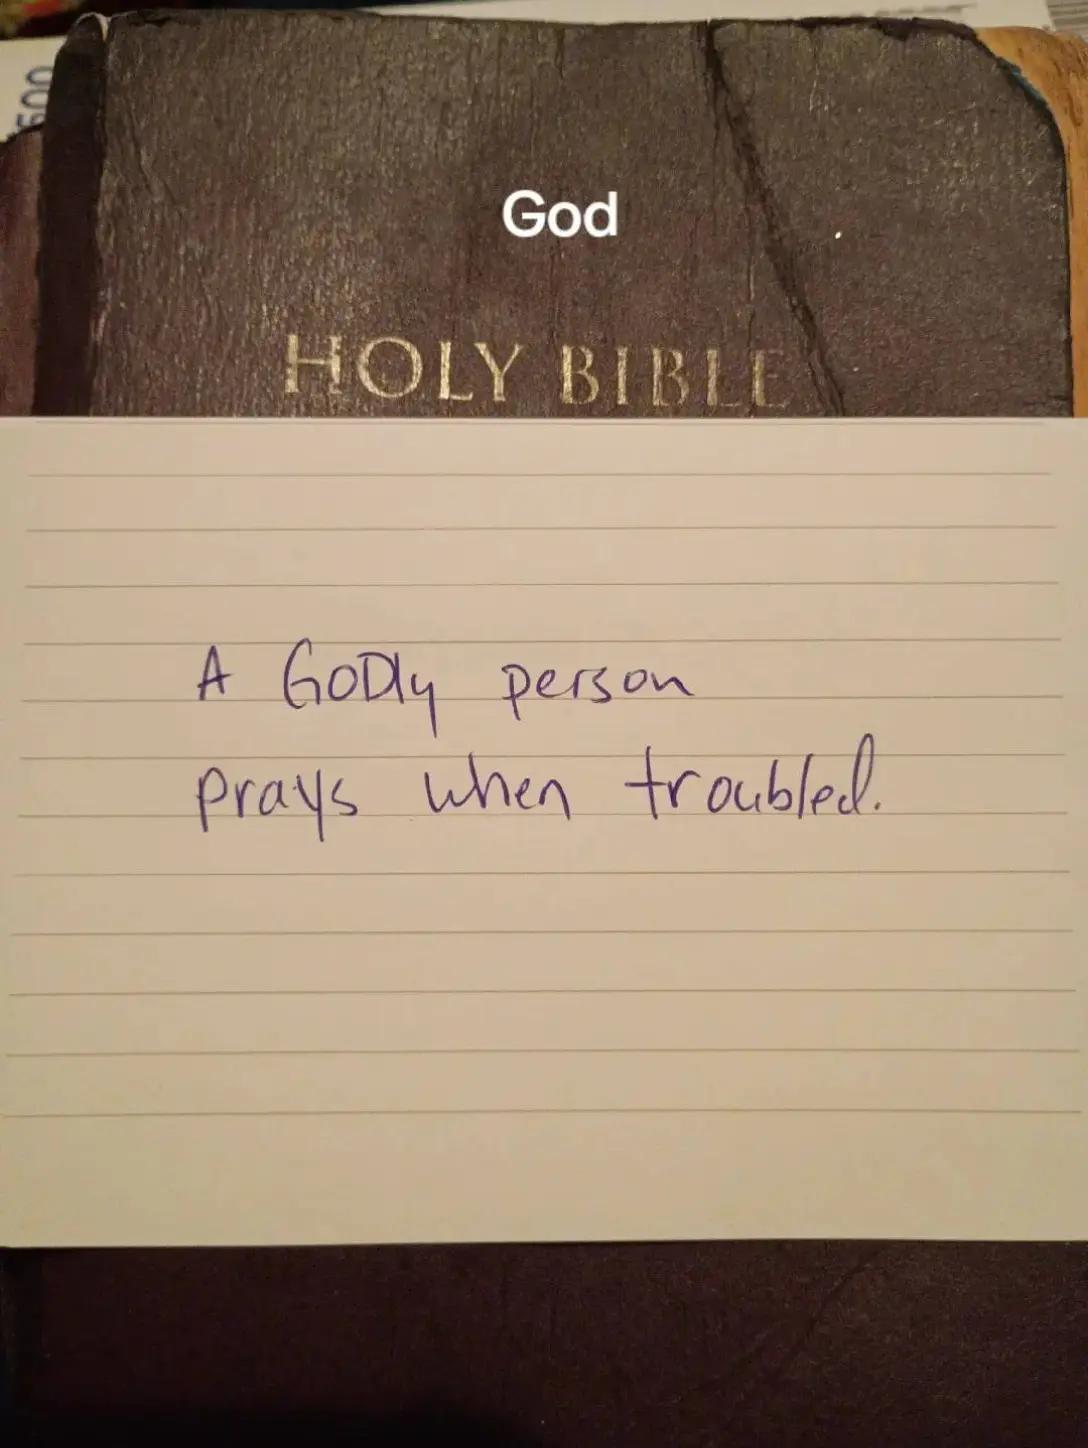 500
God
HOLY BIBLE
A GODly person
prays when troubled.